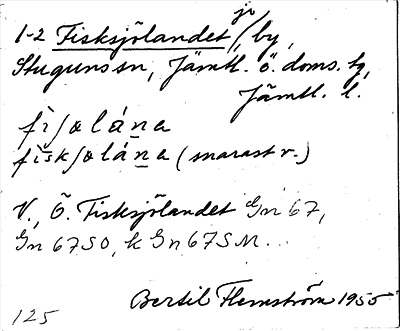 jo
1-2 Fisksjölandet, by,
Stuguns sn, Jämtl. ö. doms. tg,
Jämtl. l.
fìʃolána
fìskʃolána (snarast v.)
V., Ö. Fisksjölandet Gn 67,
Gn 67 SO, k Gn 67 SM.
Bertil Flemström 1955
125